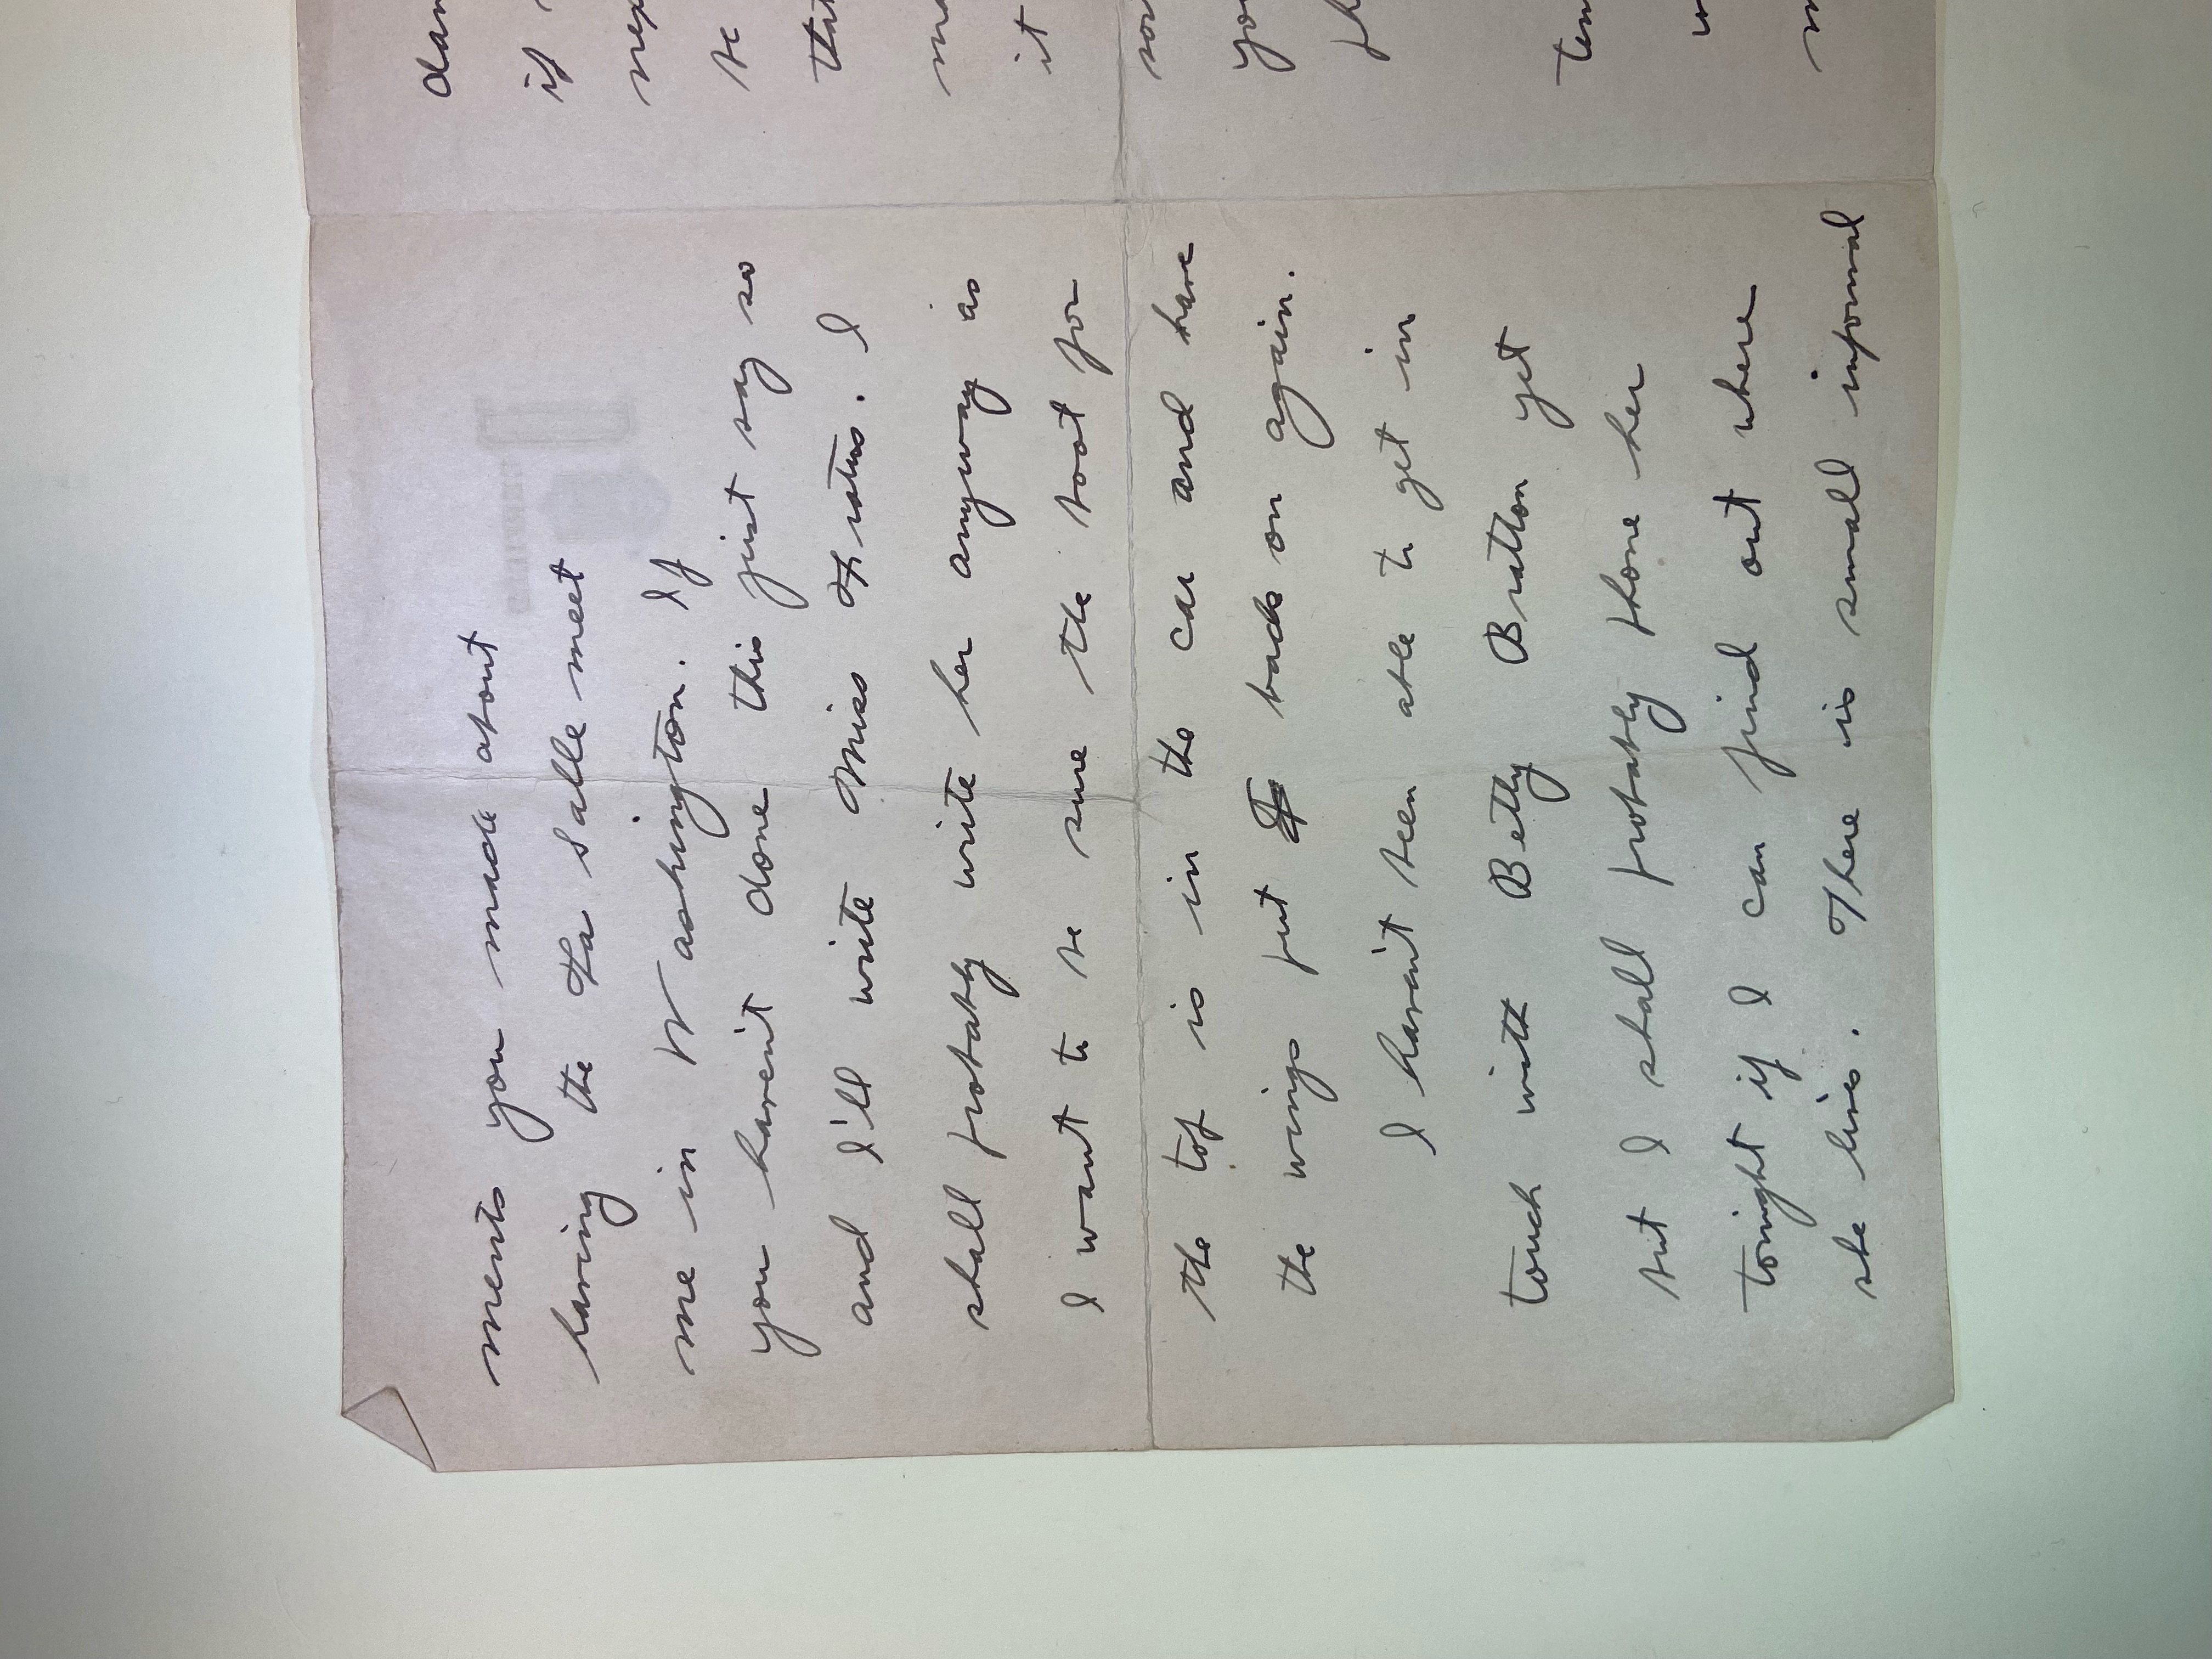 ments you made about
having the La Salle meet
me in Washington. If
you haven't done this just say so
and I'll write Miss. I
shall probably write her anyway as
I want to be sure the boot for
the top is in the car and have
the wings put back on again.
I haven't been able to get in
touch with Betty Bratton yet
but I shall probably phone her
tonight if I can find out where
she lives. There is small informal
dan
if
nex
be
that
ma
it
you
ph